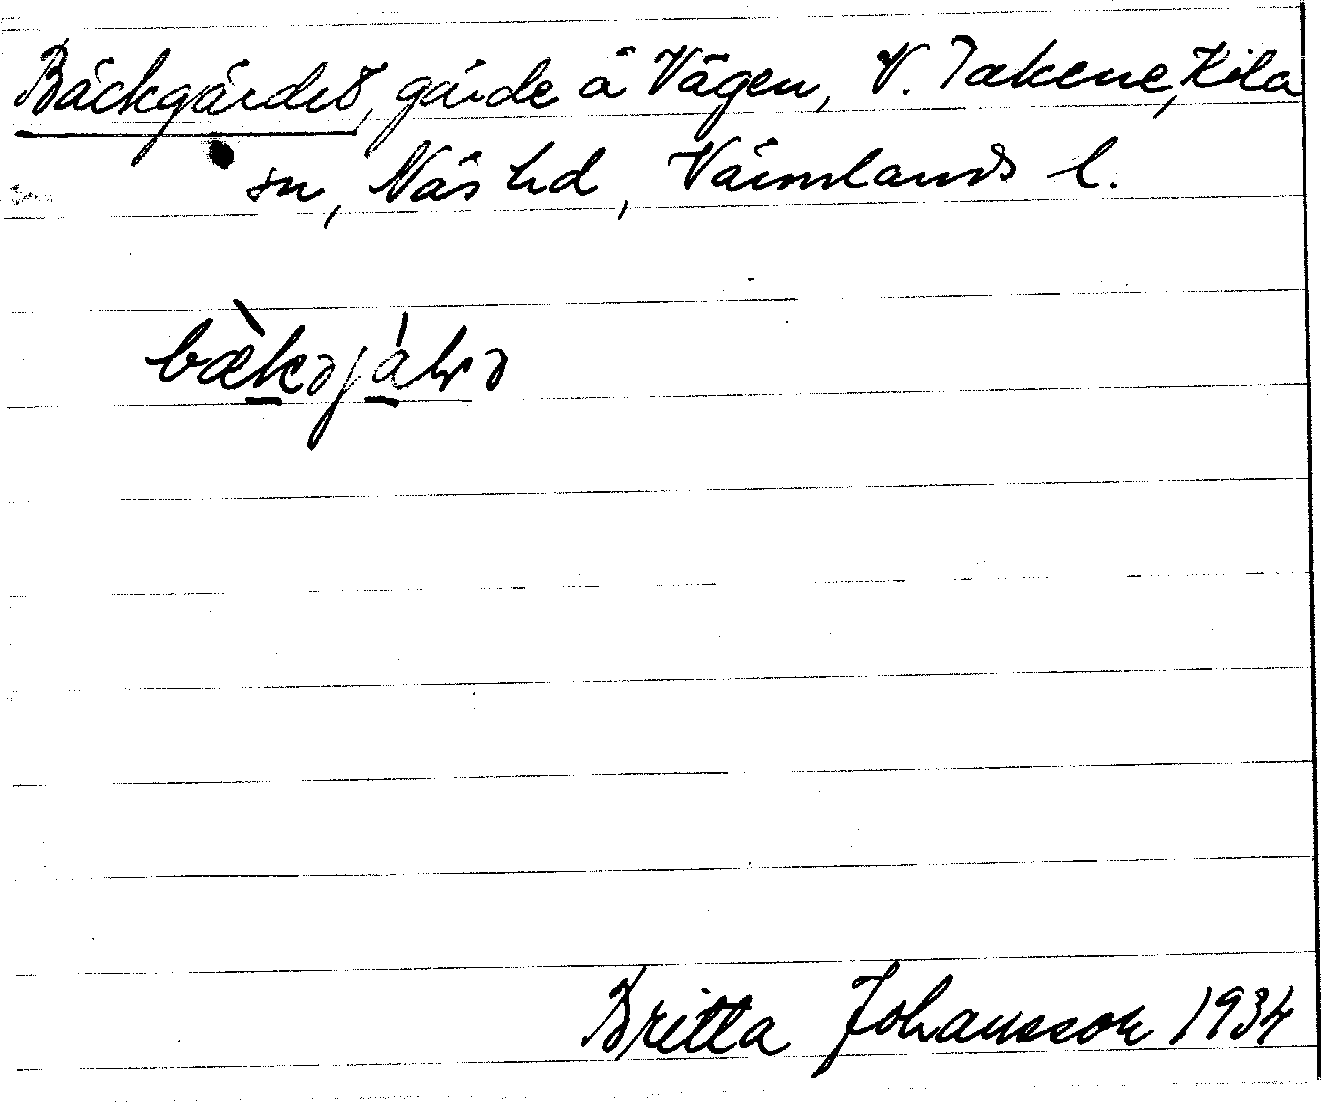 Bäckgärdet, gärde å Vägen, V. Takene, Kila
sn, Näs hd, Värmlands l.
bæ̀kəjálə
Britta Johansson 1934